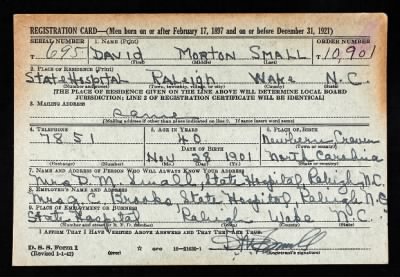 REGISTRATION CARD—(Men born on or after February 17, 1897 and on or before December 31, 1921)
SERIAL NUMBER 1. NAME (Print) ORDER NUMBER
T 695 DAVID MORTON SMALL T10,901
(First) (Middle) (Last)
2. PLACE OF RESIDENCE (Print)
State Hospital Raleigh Wake N.C.
(Number and street) (Town, township, village, or city) (County) (State)
[THE PLACE OF RESIDENCE GIVEN ON THE LINE ABOVE WILL DETERMINE LOCAL BOARD
JURISDICTION; LINE 2 OF REGISTRATION CERTIFICATE WILL BE IDENTICAL]
3. MAILING ADDRESS
Same
[Mailing address if other than place indicated on line 2. If same insert word same]
4. TELEPHONE 5. AGE IN YEARS 6. PLACE OF BIRTH
7851 40 Newbern Craven
DATE OF BIRTH (Town or county)
Nov 28 1901 North Carolina
(Exchange) (Number) (Mo.) (Day) (Yr.) (State or country)
7. NAME AND ADDRESS OF PERSON WHO WILL ALWAYS KNOW YOUR ADDRESS
Mrs D. M. Small, State Hospital, Raleigh N.C.
8. EMPLOYER'S NAME AND ADDRESS
Mrs G. C. Brooks, State Hospital, Raleigh N.C.
9. PLACE OF EMPLOYMENT OR BUSINESS
State Hospital Raleigh Wake N.C.
(Number and street or R. F. D. number) (Town) (County) (State)
I AFFIRM THAT I HAVE VERIFIED ABOVE ANSWERS AND THAT THEY ARE TRUE.
D. S. S. Form 1
(Revised 1-1-42) (over) 16—21630-1 (Registrant's signature)